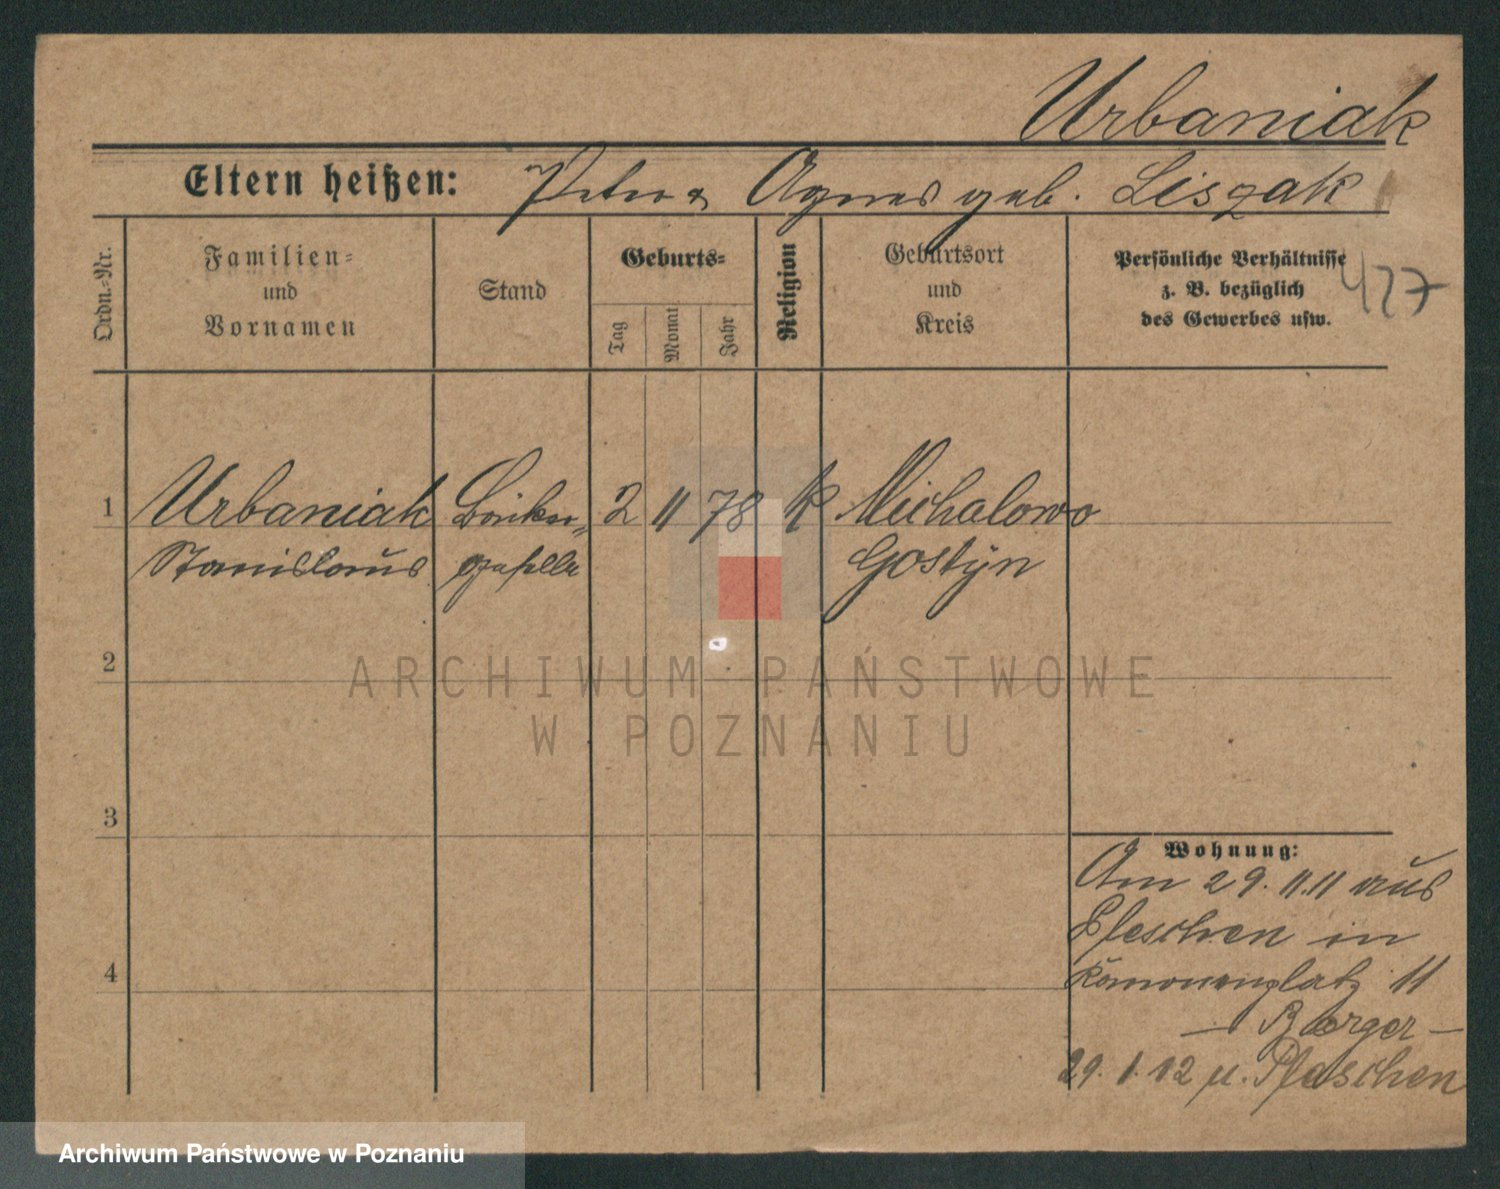 Urbaniak
Eltern heißen: Peter & Agnes geb. Liszak
Ordn.-Nr.
Familien-
und
Vornamen
Stand
Geburts-
Tag
Monat
Jahr
Religion
Geburtsort
und
Kreis
Persönliche Verhältnisse
z. B. bezüglich
des Gewerbes usw.
427
1 Urbaniak Bäcker- 2 11 78 k Michalowo
Stanislaus geselle Gostyn
2
ARCHIWUM PAŃSTWOWE
W POZNANIU
3
Wohnung:
Am 29. 11. 11 aus
Pleschen in
4
11
— Berger —
29. 1. 12 n. Pleschen
Archiwum Państwowe w Poznaniu